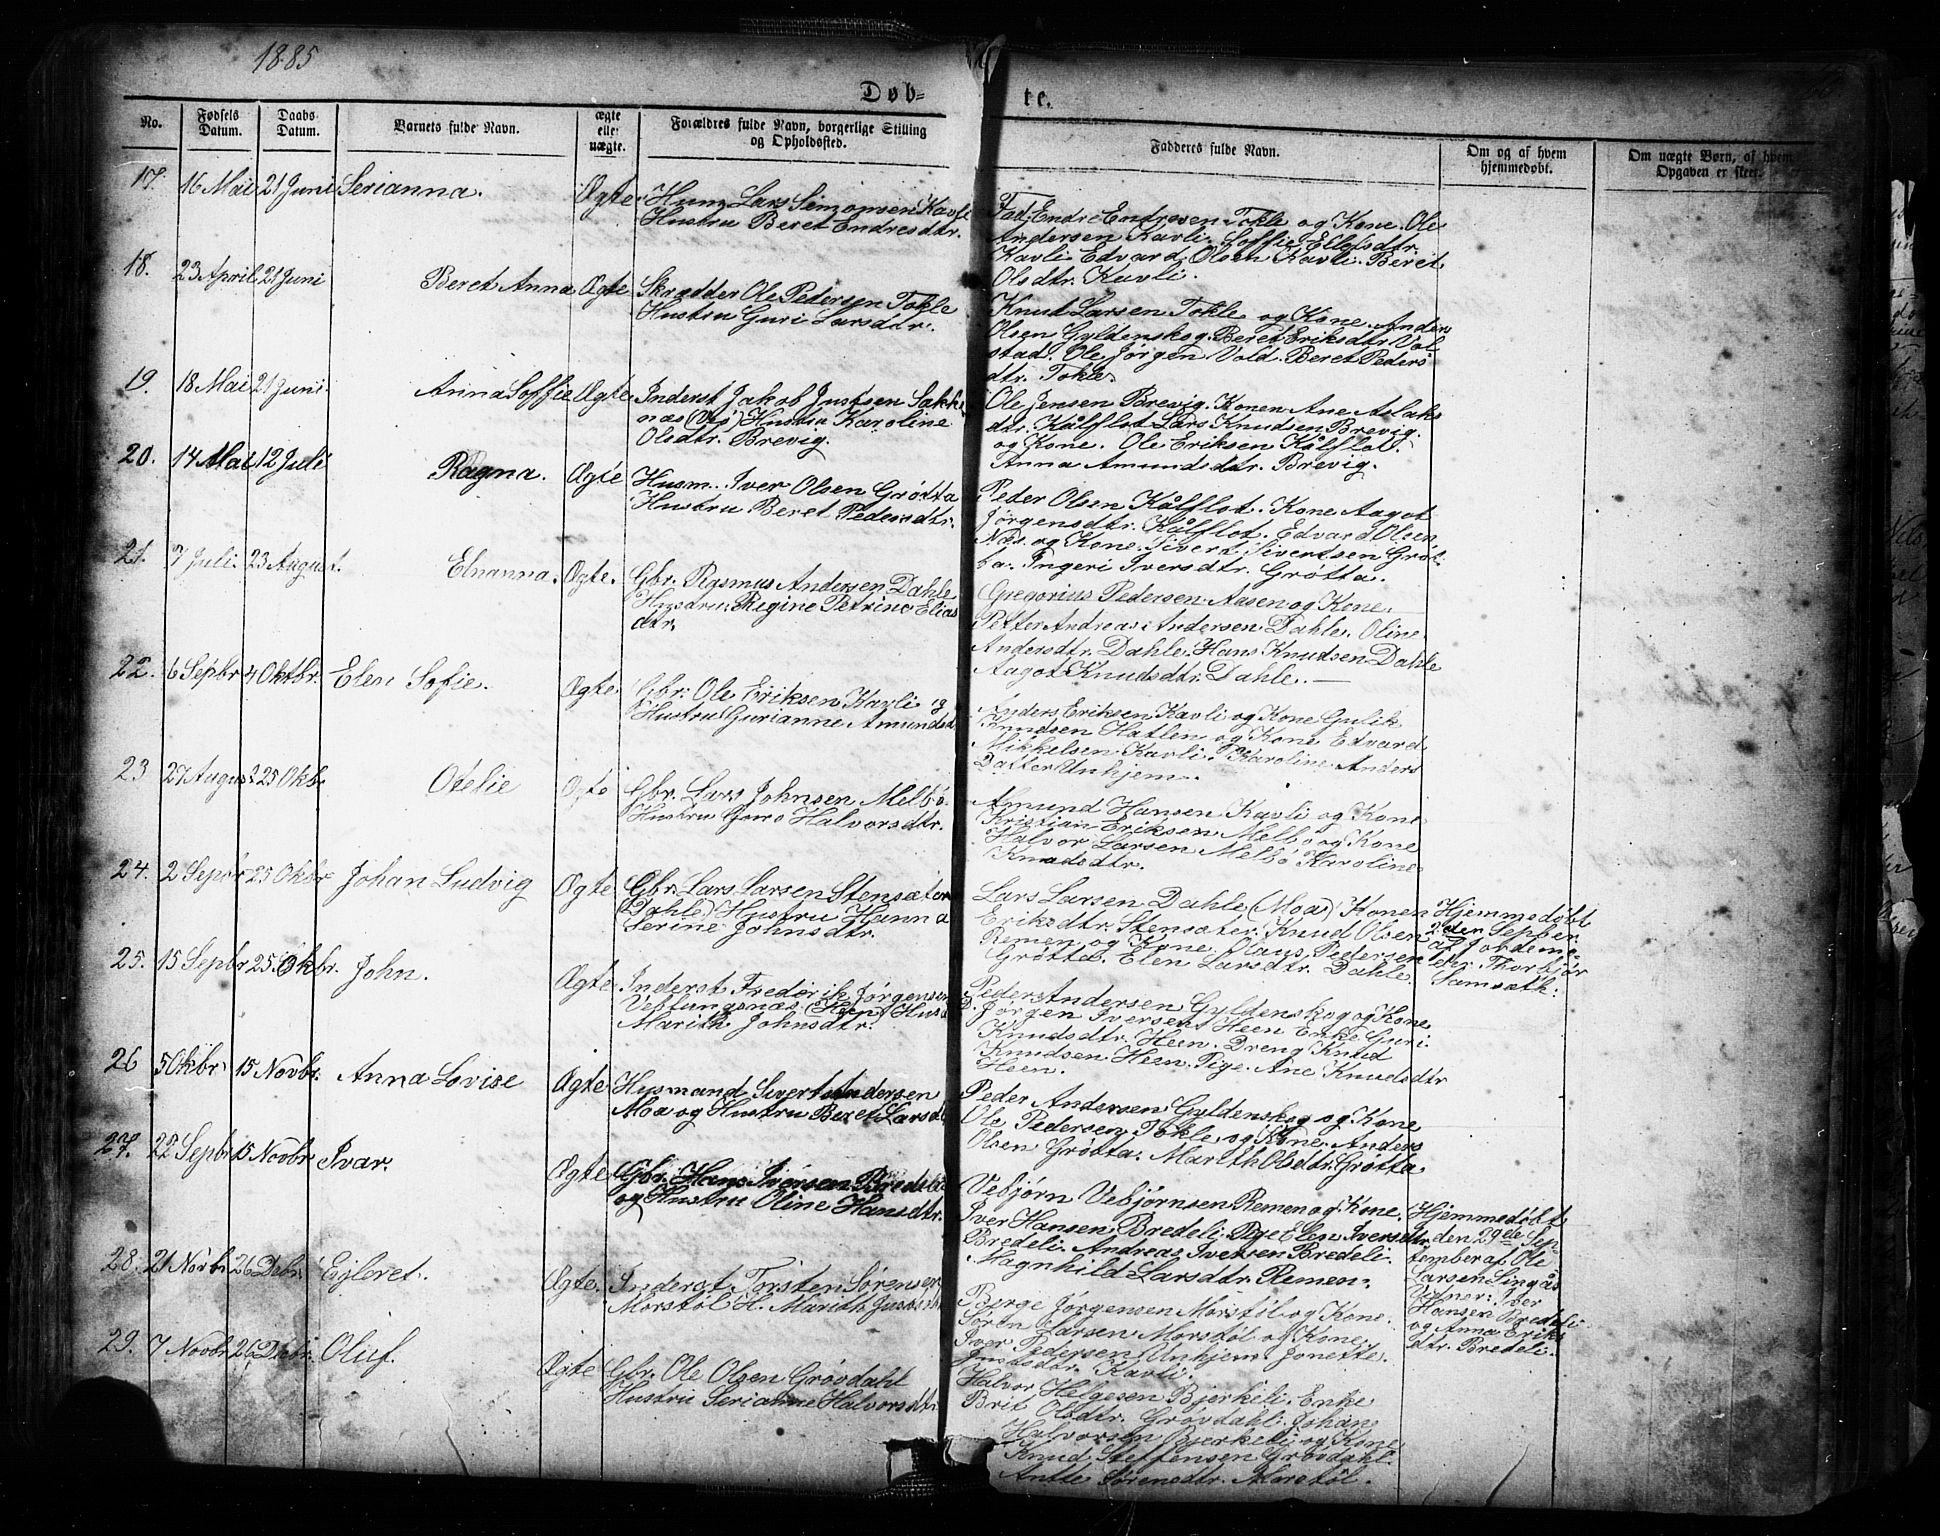 1885
Døb-
te.
No.
Fødsels Datum.
Daabs Datum.
Barnets fulde Navn.
ægte eller uægte.
Forældres fulde Navn, borgerlige Stilling og Opholdssted.
Fadderes fulde Navn.
Om og af hvem hjemmedøbt.
Om uægte Børn, af hvem Opgaven er skeet.
17. 16 Mai 21 Juni Serianna. Ægte.
Husm Lars Simonsen Kavli
Hustru Beret Endresdtr.
Fad: Endre Endresen Tokle og Kone. Ole
Andersen Kavli. Soffie Ellefsdtr.
Kavli. Edvard Olsen Kavli. Beret
Olsdtr. Kavli.
18. 23 April 21 Juni Beret Anna Ægte
Skrædder Ole Pedersen Tokle
Hustru Guri Larsdtr.
Knud Larsen Tokle og Kone. Anders
Olsen Gyldenskog. Beret Eriksdtr. Vol
stad. Ole Jørgen Vold. Beret Peders
dtr. Tokle.
19. 18 Mai 21 Juni. Anna Soffie Ægte
Inderst Jakob Justsen Sakk
næs (Vø) Hustru Karoline
Olsdtr. Brevig.
Ole Jensen Brevig. Konen Ane Aslaks
dtr. Kålflot Lars Knudsen Brevig.
og Kone. Ole Eriksen Kålflot.
Anna Amundsdtr. Brevig.
20. 14 Mai 12 Juli Ragna. Ægte
Husm. Iver Olsen Grøtta
Hustru Beret Pedersdtr.
Peder Olsen Kålflot. Kone Aagot
Jørgensdtr. Kålflot. Edvard Olsen
Næs. og Kone. Sivert Sivertsen Grøt-
ta. Ingeri Iversdtr. Grøtta.
21. 7 Juli. 23 August. Elnanna. Ægte.
Gbr. Rasmus Andersen Dahle
Hustru Regine Petrine Elias
dtr.
Gregorius Pedersen Aasen og Kone.
Petter Andreas Andersen Dahle. Oline
Andersdtr. Dahle. Hans Knudsen Dahle
Aagot Knudsdtr. Dahle. —
22. 6 Sepbr 4 Oktbr. Elen Sofie. Ægte.
Gbr: Ole Eriksen Kavli og
Hustru Gurianne Amundsd
Anders Eriksen Kavli og Kone Gulik
Knudsen Hatlen og Kone Edvard
Mikkelsen Kavli. Karoline Anders
Datter Unhjem.
23 27 August 25 Okbr Otelie Ægte
Gbr. Lars Johnsen Melbø.
Hustru Guro Halvorsdtr.
Amund Hansen Kavli og Kone
Kristian Eriksen Melbø og Kone
Halvor Larsen Melbø Karoline
Knudsdtr.
24. 2 Sepbr 25 Okbr Johan Ludvig Ægte
Gbr. Lars Larsen Stensæter
(Dahle) Hustru Hanna
Serine Johnsdtr.
Lars Larsen Dahle (Moa) Konen
Eriksdtr. Stensæter. Knud Olsen
Remen og Kone. Olaus Pedersen
Grøtta. Elen Larsdtr. Dahle.
Hjemmedøbt
2den Septer.
af Jordemo-
der Thorbjør
Samsæth:
25. 15 Sepbr 25 Okbr. John. Ægte
Inderst Frederik Jørgensen
Veblungsnæs (Heen) Hus
Marith Johnsdtr.
Peder Andersen Gyldenskog og Kone
D. Jørgen Iversen Heen Enke Guri
Knudsdtr. Heen. Dreng Knud
Knudsen Heen Pige. Ane Knudsdtr
Heen.
26 5 Okbr 15 Novbr. Anna Lovise Ægte
Husmand Sivert Andersen
Moa og Hustru Beret Larsd
Peder Andersen Gyldenskog og Kone
Ole Pedersen Tokle og Kone. Anders
Olsen Grøtta. Marith Olsdtr. Grøtta.
27. 22 Sepbr 15 Novbr Ivar. Ægte
Gbr. Hans Iversen Bredeli
og Hustru Oline Hansdtr.
Vebjørn Vebjørnsen Remen og Kone.
Iver Hansen Bredeli. Pige Elen Iversdtr
Bredeli. Andreas Iversen Bredeli.
Magnhild Larsdtr. Remen.
Hjemmedøbt
den 29de Sep-
tember af Ole
Larsen Singås
Vidner: Iver
Hansen Bredeli
og Anna Eriks
dtr. Bredeli.
28. 21 Novbr 26 Debr Ejleret. Ægte.
Inderst Torsten Sørensen
Morstøl H. Marith Justsdtr
Børge Jørgensen Morstøl og Kone.
Søren Larsen Morstøl og Kone
Iver Pedersen Unhjem. Jonette
Justsdtr. Kavli.
29. 7 Novbr 26 Debr. Oluf. Ægte
Gbr. Ole Olsen Grøvdahl
Hustru Serianne Halvorsdtr
Halvor Helgesen Bjerkeli. Enke
Brit Olsdtr. Grøvdahl. Johan
Halvorsen Bjerkeli og Kone
Knud Steffensen Grøvdahl.
Antle Sørensdtr. Morstøl.